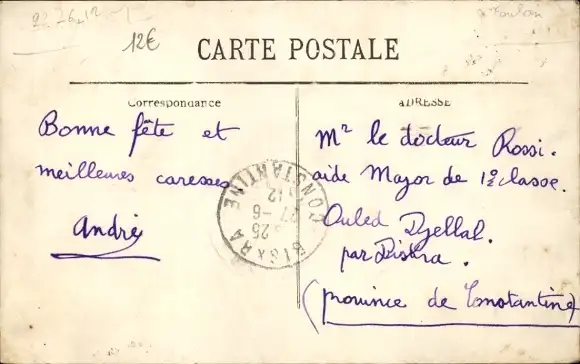 22-6-12
Toulon
12€
CARTE POSTALE
Correspondance
ADRESSE
Bonne fête et
meilleures caresses
André
Mr le docteur Rossi.
aide Major de 1e classe.
Ouled Djellal.
par Biskra.
(province de Constantine)
BISKRA
CONSTANTINE
25
27-6
12